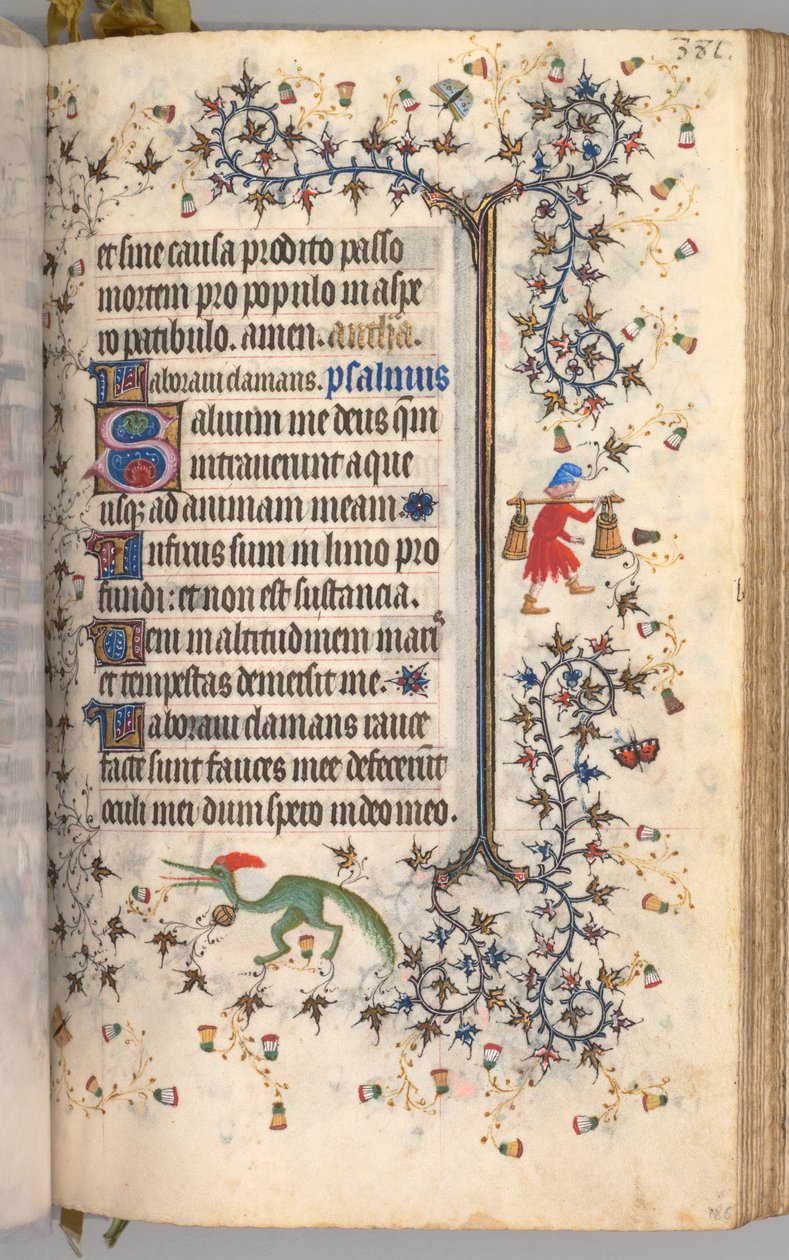 381.
et sine causa prodito passo
mortem pro populo in aspe
ro patibulo. amen. antha.
Laboraui clamans. psalmus
Saluum me deus qm
intrauerunt aque
usq; ad animam meam
Infixus sum in limo pro
fundi: et non est sustancia.
Ueni in altitudinem maris
et tempestas demersit me.
Laboraui clamans rauce
facte sunt fauces mee defecerut
oculi mei dum spero in deo meo.